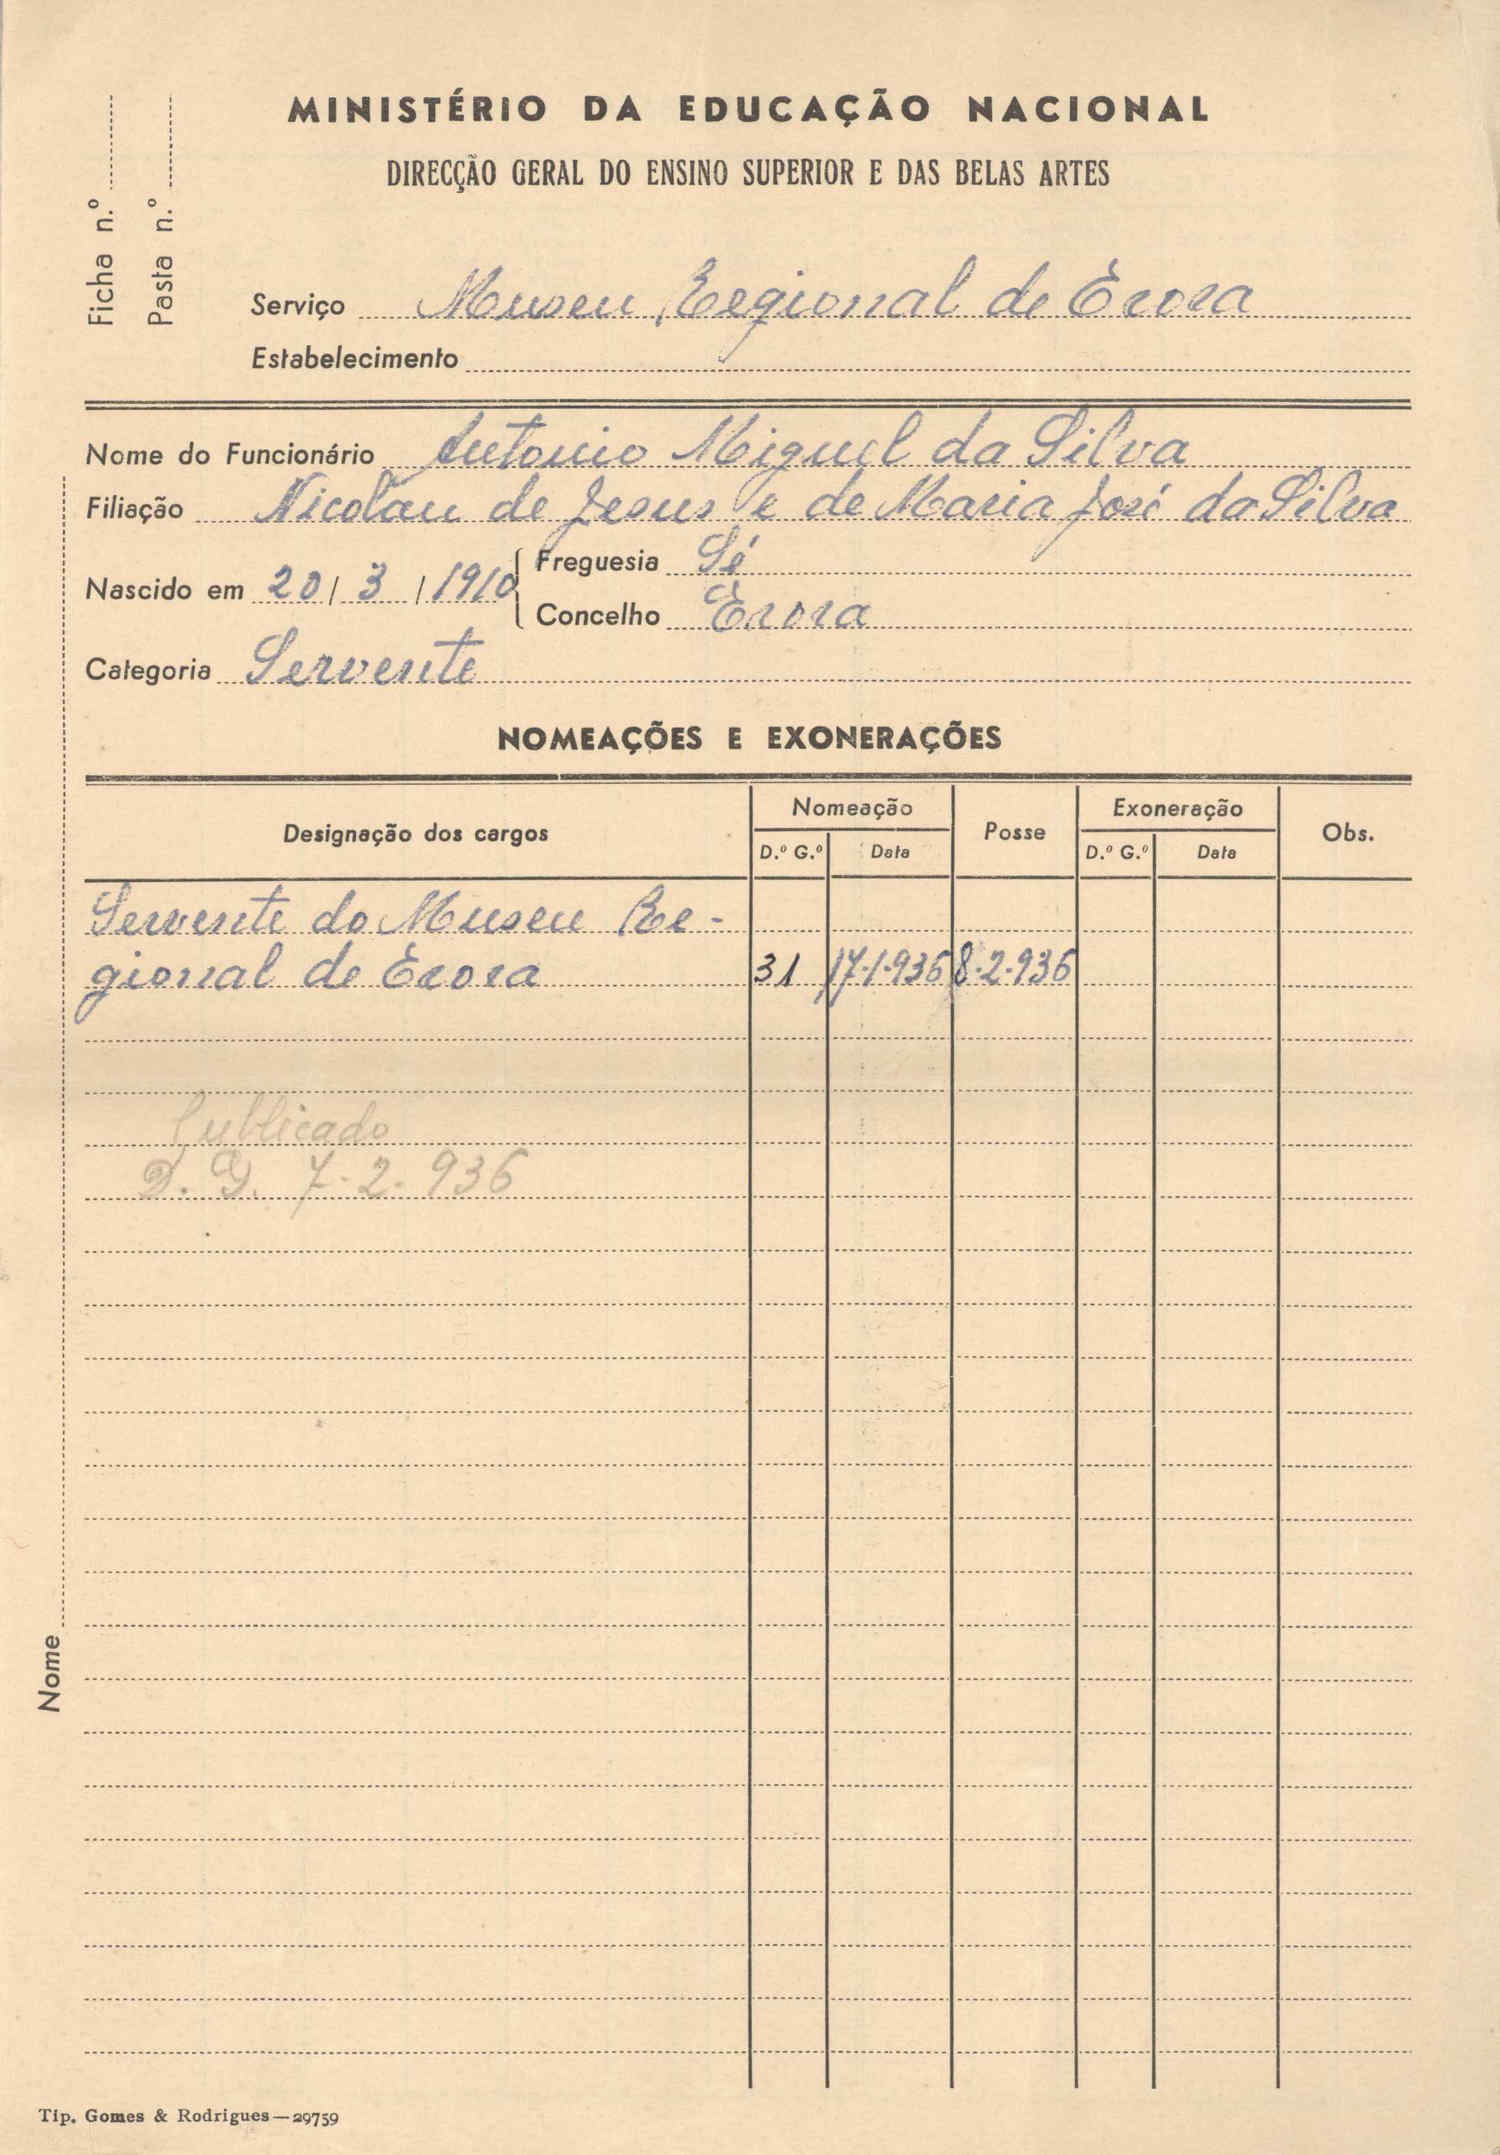 MINISTÉRIO DA EDUCAÇÃO NACIONAL
DIRECÇÃO GERAL DO ENSINO SUPERIOR E DAS BELAS ARTES
Ficha n.º
Pasta n.º
Serviço Museu Regional de Èvora
Estabelecimento
Nome do Funcionário Antonio Miguel da Silva
Filiação Nicolau de Jesus e de Maria José da Silva
Nascido em 20 / 3 / 1910
Freguesia Sé
Concelho Èvora
Categoria Servente
NOMEAÇÕES E EXONERAÇÕES
Designação dos cargos Nomeação Posse Exoneração Obs.
D.º G.º Data D.º G.º Data
Servente do Museu Re-
gional de Èvora 31 17-1-936 8-2-936
Publicado
D. G. 7-2-936
Nome
Tip. Gomes & Rodrigues—29759